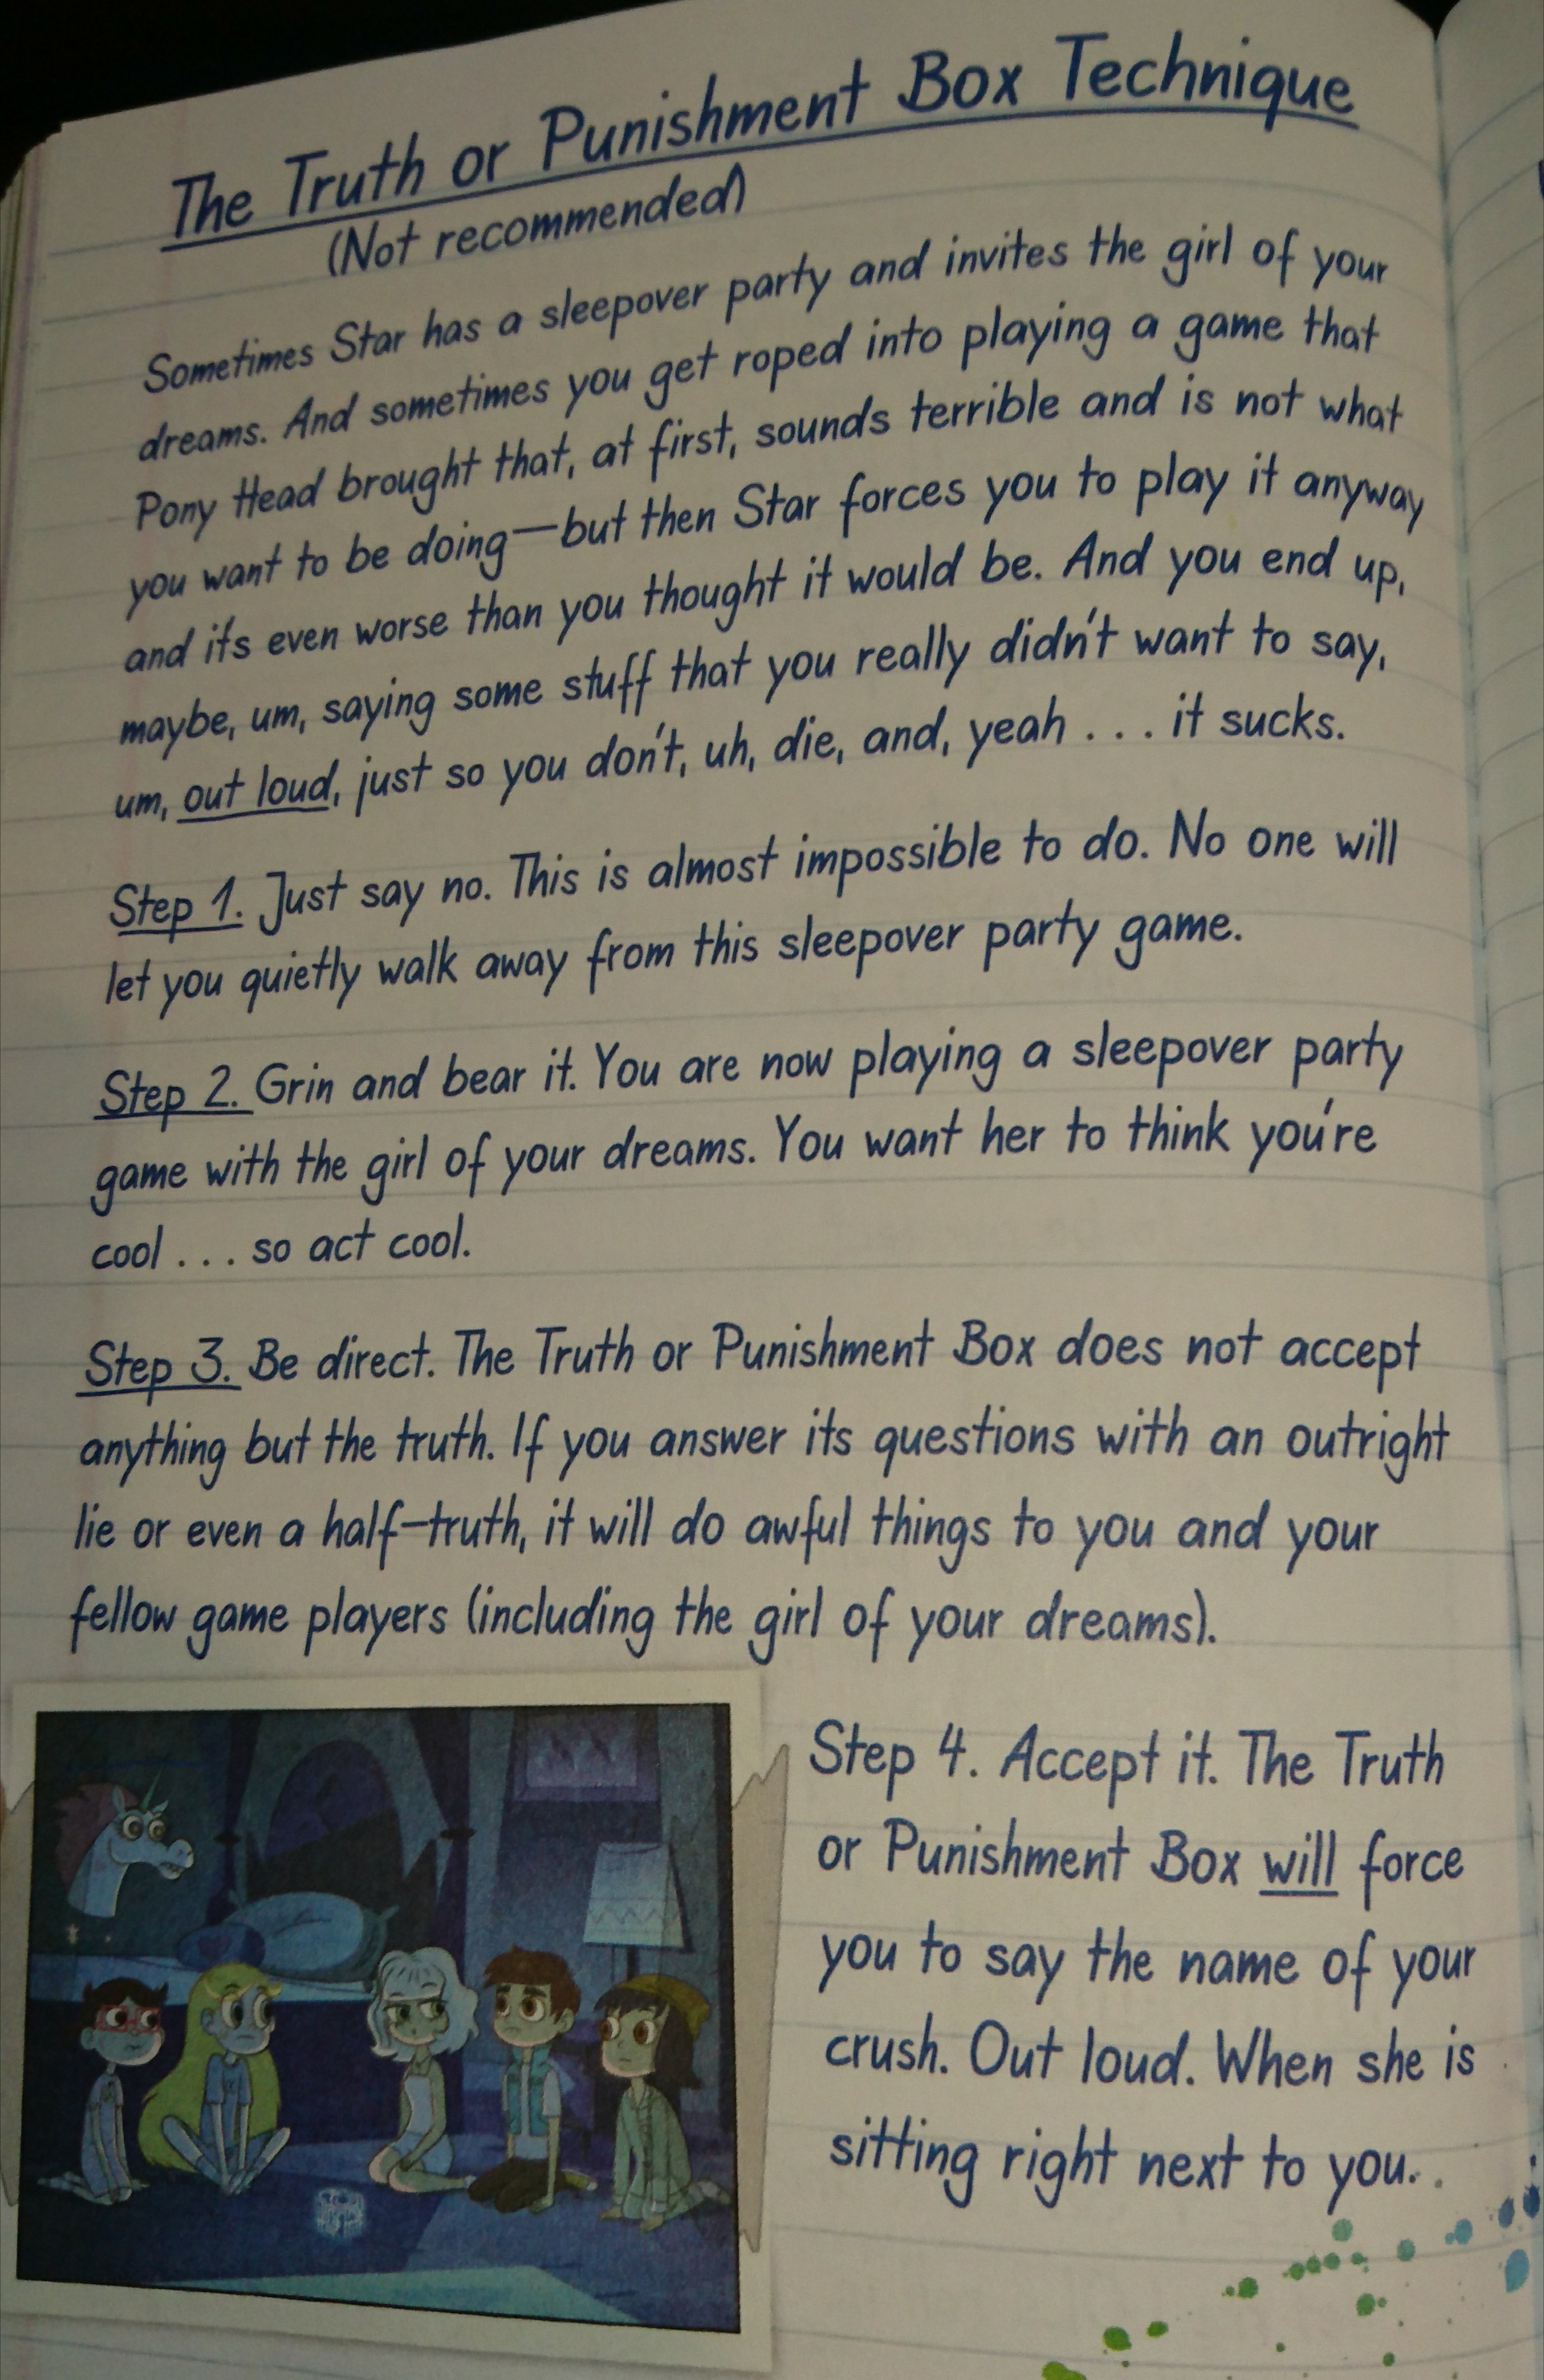 The Truth or Punishment Box Technique
(Not recommended)
Sometimes Star has a sleepover party and invites the girl of your
dreams. And sometimes you get roped into playing a game that
Pony Head brought that, at first, sounds terrible and is not what
you want to be doing—but then Star forces you to play it anyway
and it's even worse than you thought it would be. And you end up,
maybe, um, saying some stuff that you really didn't want to say,
um, out loud, just so you don't, uh, die, and, yeah . . . it sucks.
Step 1. Just say no. This is almost impossible to do. No one will
let you quietly walk away from this sleepover party game.
Step 2. Grin and bear it. You are now playing a sleepover party
game with the girl of your dreams. You want her to think you're
cool . . . so act cool.
Step 3. Be direct. The Truth or Punishment Box does not accept
anything but the truth. If you answer its questions with an outright
lie or even a half-truth, it will do awful things to you and your
fellow game players (including the girl of your dreams).
Step 4. Accept it. The Truth
or Punishment Box will force
you to say the name of your
crush. Out loud. When she is
sitting right next to you.